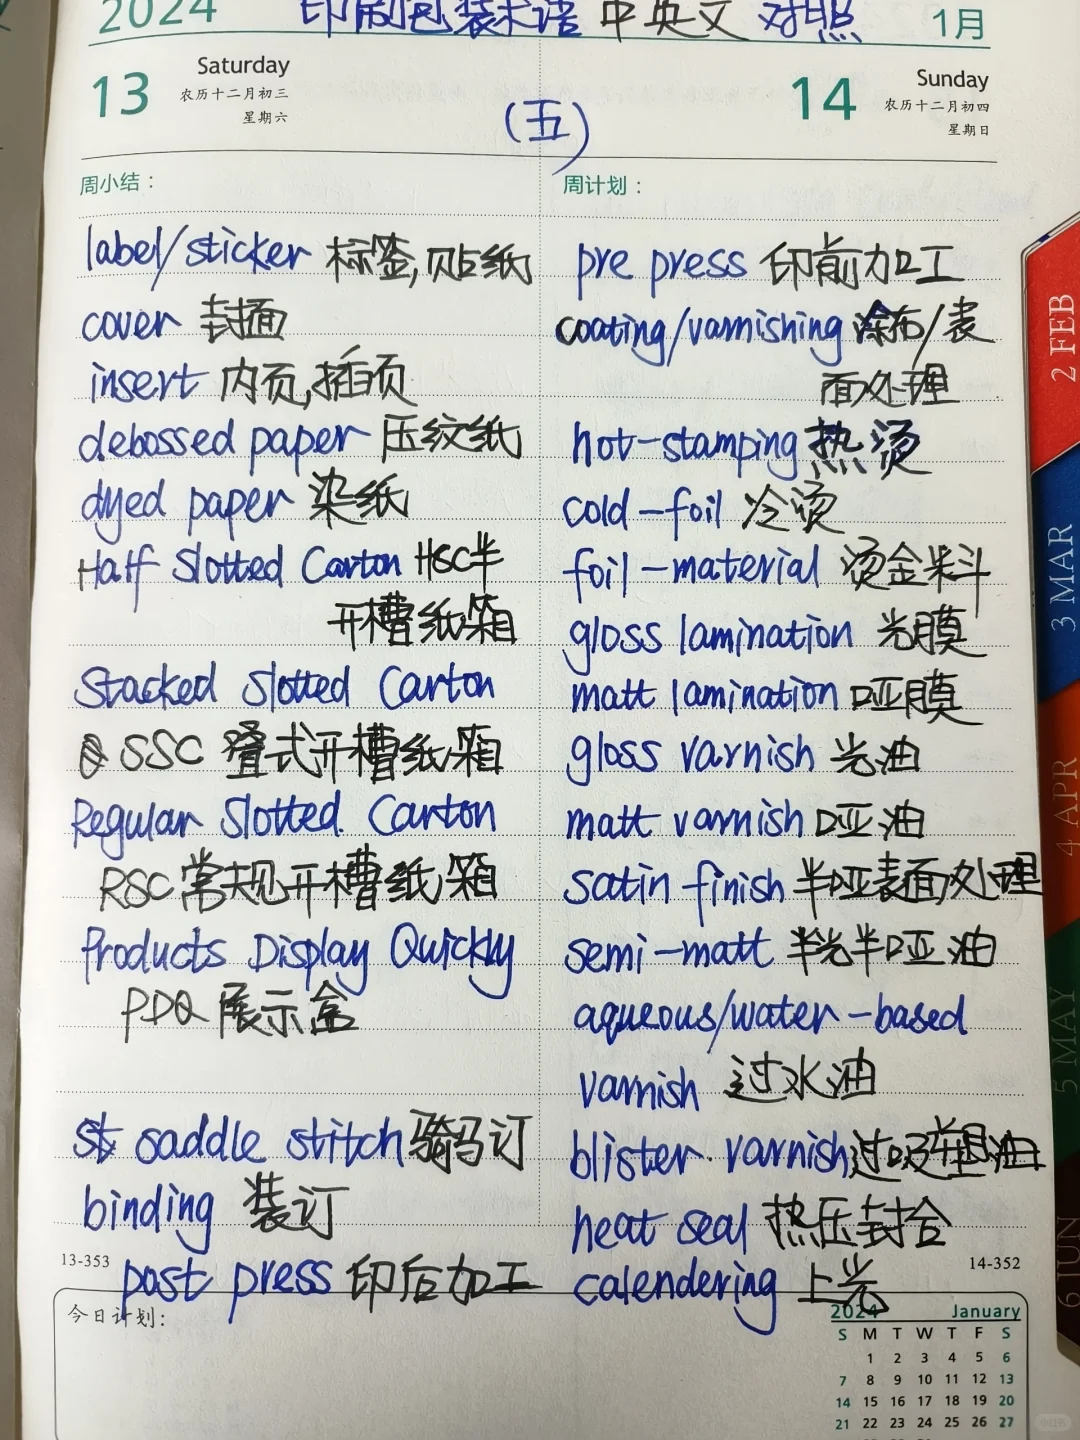 2024 印刷包装术语 中英文 对照 1月
13 Saturday
农历十二月初三
星期六
14 Sunday
农历十二月初四
星期日
(五)
周小结：
label/sticker 标签,贴纸
cover 封面
insert 内页,插页
debossed paper 压纹纸
dyed paper 染纸
Half Slotted Carton HSC半
开槽纸箱
Stacked Slotted Carton
SSC 叠式开槽纸箱
Regular Slotted Carton
RSC常规开槽纸箱
Products Display Quickly
PDQ 展示盒
saddle stitch 骑马订
binding 装订
post press 印后加工
13-353
周计划：
pre press 印前加工
coating/varnishing 涂布/表
面处理
hot-stamping 热烫
cold-foil 冷烫
foil-material 烫金料
gloss lamination 光膜
matt lamination 哑膜
gloss varnish 光油
matt varnish 哑油
satin finish 半哑表面处理
semi-matt 半光半哑油
aqueous/water-based
varnish 过水油
blister varnish过吸塑油
heat seal 热压封合
calendering 上光
14-352
今日计划：
2024 January
S M T W T F S
1 2 3 4 5 6
7 8 9 10 11 12 13
14 15 16 17 18 19 20
21 22 23 24 25 26 27
2 FEB
3 MAR
4 APR
5 MAY
6 JUN